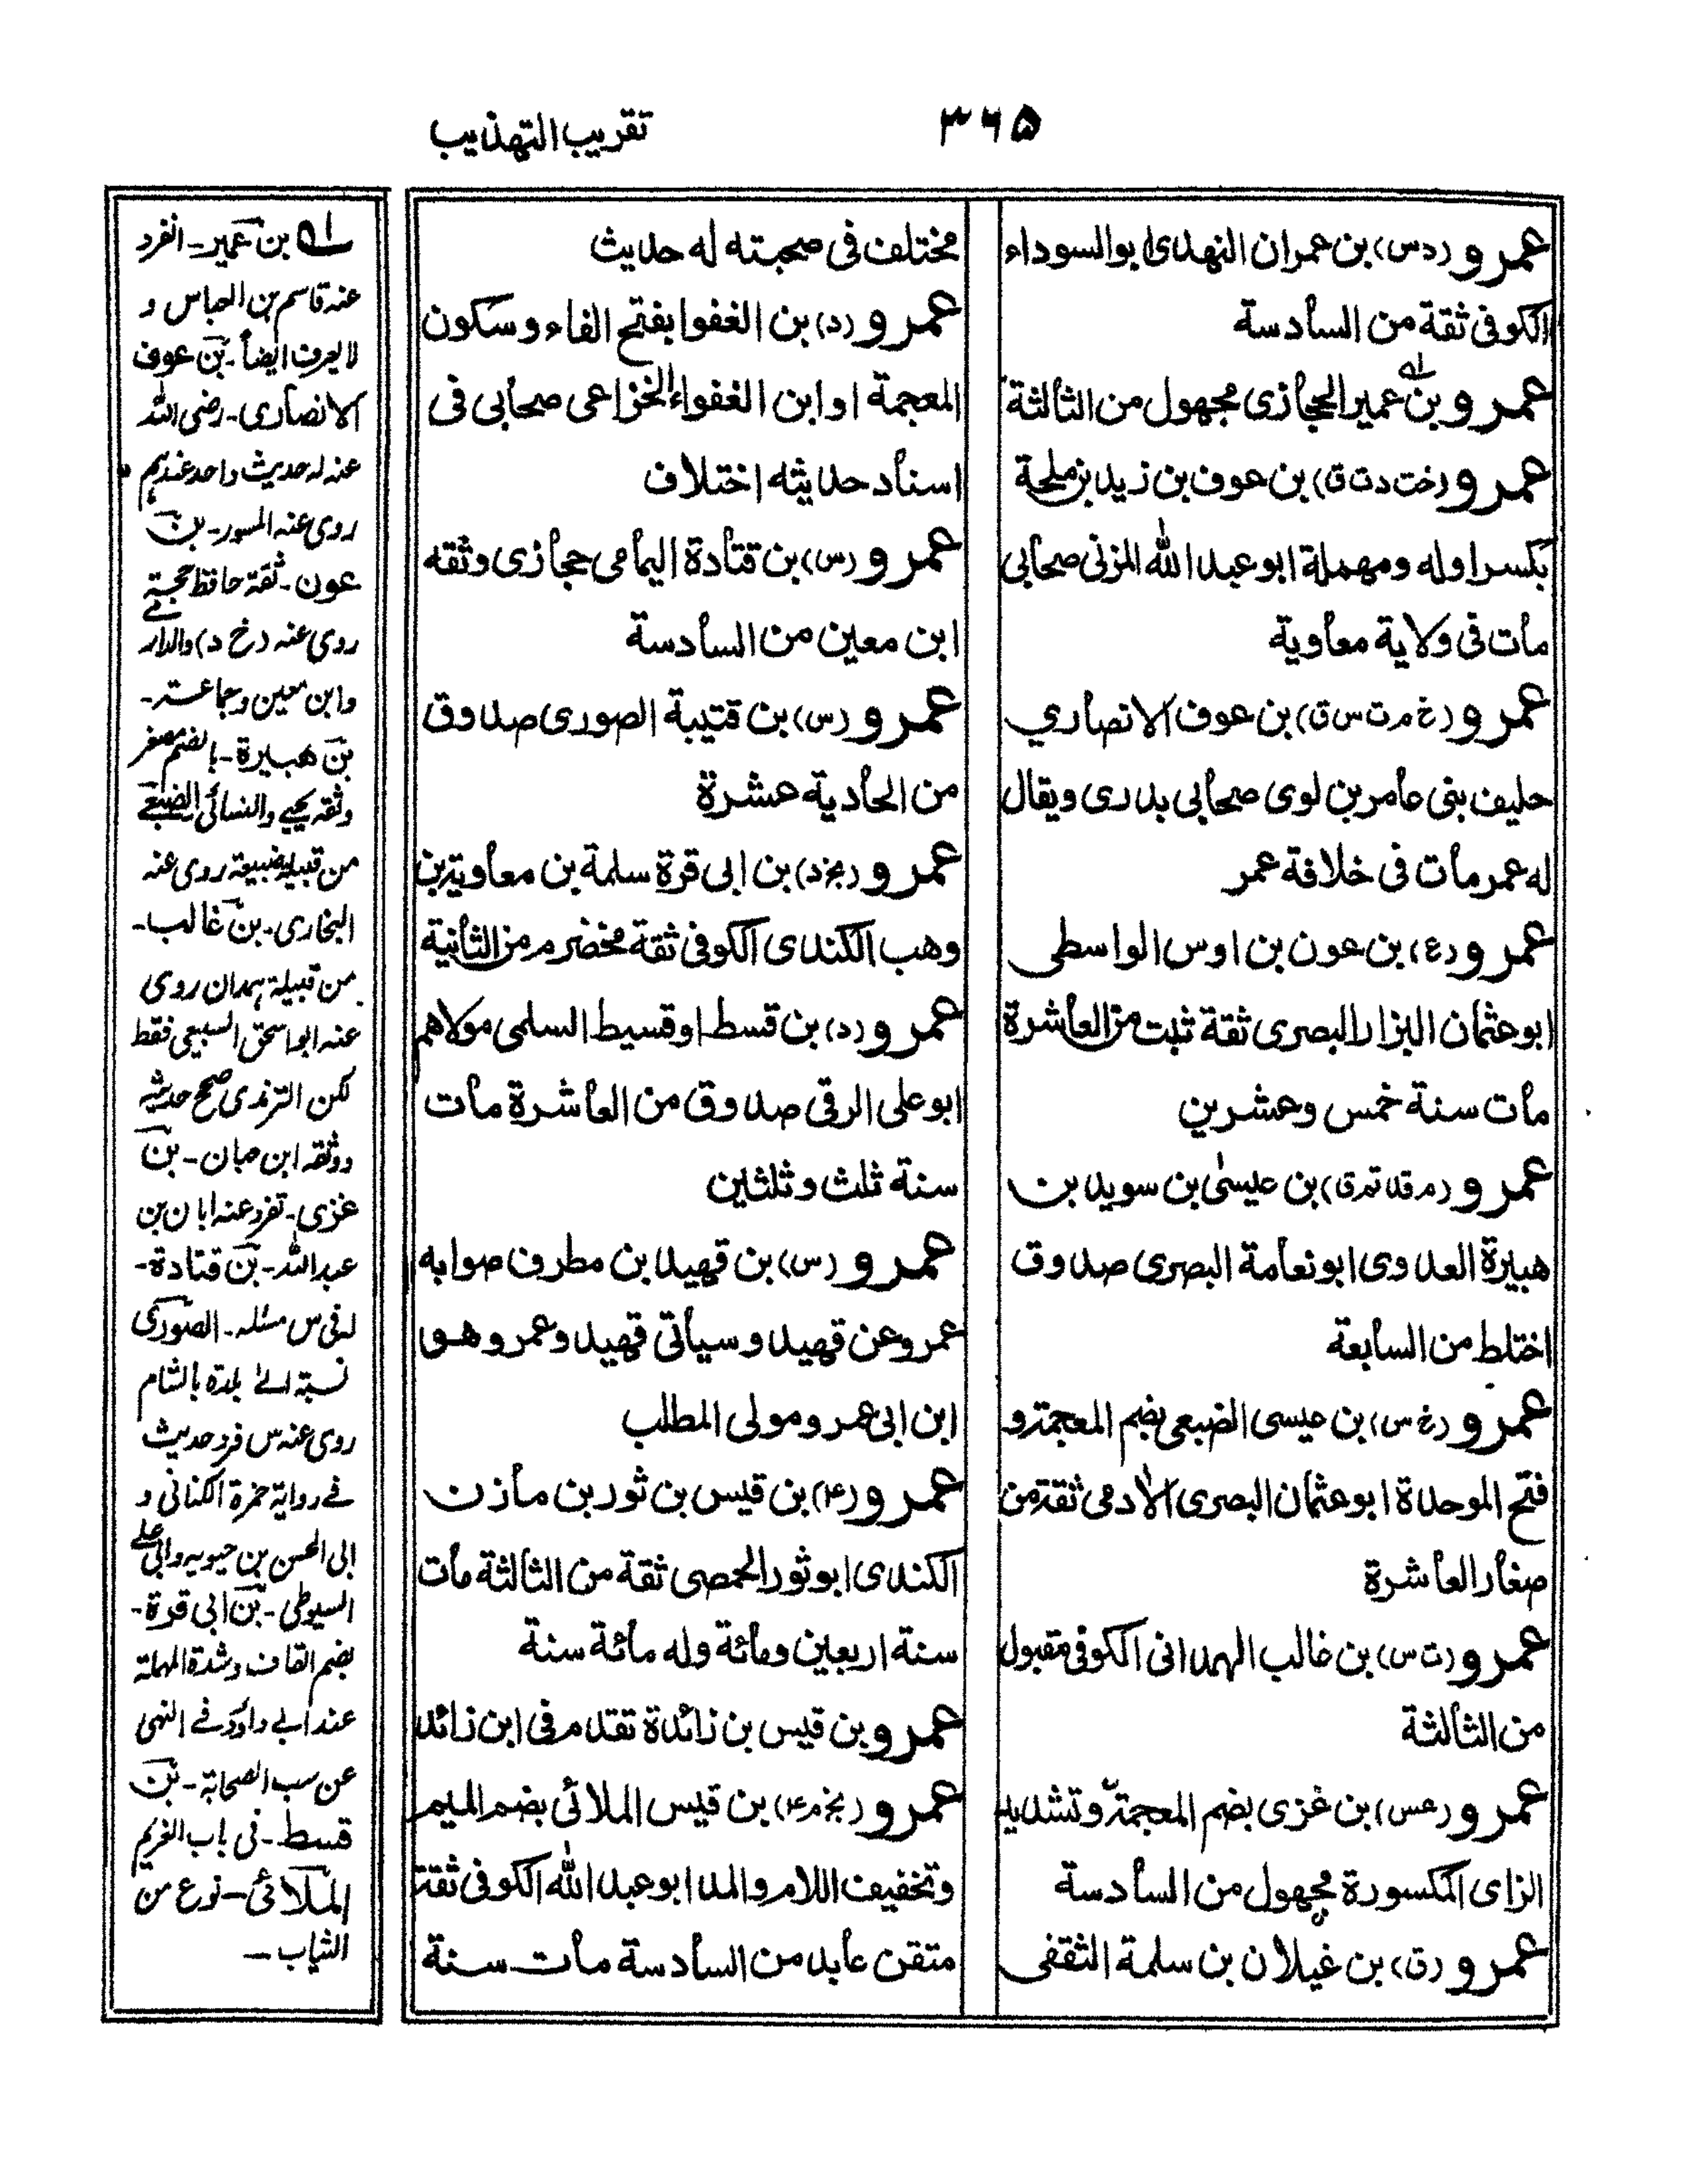 ۳۶۵
تقریب التهذیب
عمرو (د س) بن عمران النهدی ابو السوداء
الکوفی ثقة من السادسة
عمرو بن عمیر الحجازی مجهول من الثالثة
عمرو (خت د ت ق) بن عوف بن زید بن ملحة
بکسر اوله ومهملة ابو عبد الله المزنی صحابی
مات فی ولایة معاویة
عمرو (خ م ت س ق) بن عوف الانصاري
حلیف بنی عامر بن لوی صحابی بدری ویقال
له عمر مات فی خلافة عمر
عمرو (ع) بن عون بن اوس الواسطی
ابو عثمان البزار البصری ثقة ثبت من العاشرة
مات سنة خمس وعشرین
عمرو (م قد تم ق) بن عیسیٰ بن سوید بن
هبیرة العدوی ابو نعامة البصری صدوق
اختلط من السابعة
عمرو (خ س) بن عیسی الضبعی بضم المعجمة و
فتح الموحدة ابو عثمان البصری الادمی ثقة من
صغار العاشرة
عمرو (ت س) بن غالب الهمدانی الکوفی مقبول
من الثالثة
عمرو (عس) بن غزی بضم المعجمة وتشدید
الزای المکسورة مجهول من السادسة
عمرو (ق) بن غیلان بن سلمة الثقفی
مختلف فی صحبته له حدیث
عمرو (د) بن الغفوا بفتح الفاء وسکون
المعجمة او ابن الغفواء الخزاعی صحابی فی
اسناد حدیثه اختلاف
عمرو (س) بن قتادة الیمامی حجازی وثقه
ابن معین من السادسة
عمرو (س) بن قتیبة الصوری صدوق
من الحادیة عشرة
عمرو (بخ د) بن ابی قرة سلمة بن معاویة بن
وهب الکندی الکوفی ثقة مخضرم من الثانیة
عمرو (د) بن قسط او قسیط السلمی مولاهم
ابو علی الرقی صدوق من العاشرة مات
سنة ثلث وثلثین
عمرو (س) بن قهید بن مطرف صوابه
عمرو عن قهید وسیاتی قهید وعمرو هو
ابن ابی عمرو مولی المطلب
عمرو (۴) بن قیس بن ثور بن مازن
الکندی ابو ثور الحمصی ثقة من الثالثة مات
سنة اربعین ومائة وله مائة سنة
عمرو بن قیس بن زائدة تقدم فی ابن زائد
عمرو (بخ م ۴) بن قیس الملائی بضم المیم
وتخفیف اللام والمد ابو عبد الله الکوفی ثقة
متقن عابد من السادسة مات سنة
بن عمیر۔ انفرد
عنه قاسم بن العباس و
لا یعرف ایضا۔ بن عوف
الانصاری۔ رضی الله
عنه له حدیث واحد عندهم
روی عنه المسور۔ بن
عون۔ ثقة حافظ حجة
روی عنه (خ د) والدار
وابن معین وجماعة۔
بن هبیرة۔ بالضم مصغر
وثقه یحیی والنسائی الضبعی
من قبیلة ضبیعة روی عنه
البخاری۔ بن غالب۔
من قبیلة همدان روی
عنه ابو اسحق السبیعی فقط
لکن الترمذی صحح حدیثه
ووثقه ابن حبان۔ بن
غزی۔ تفرد عنه ابان بن
عبد الله۔ بن قتادة۔
له فی س مسئلة۔ الصوری
نسبة الی بلدة بالشام
روی عنه س فرد حدیث
فی روایة حمزة الکنانی و
ابی الحسن بن حیویه وابی علی
السیوطی۔ بن ابی قرة۔
بضم القاف وشدة المهملة
عند ابی داؤد فی النهی
عن سب الصحابة۔ بن
قسط۔ فی باب الغریم
الملائی۔ نوع من
الثیاب۔